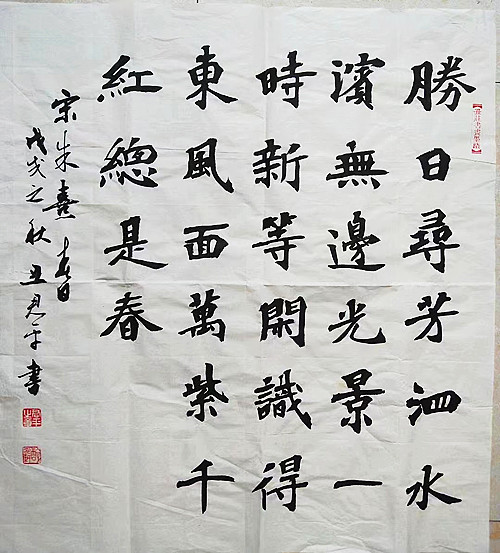 勝日尋芳泗水
濱無邊光景一
時新等閑識得
東風面萬紫千
紅總是春
宋朱熹春日
戊戌之秋 平書